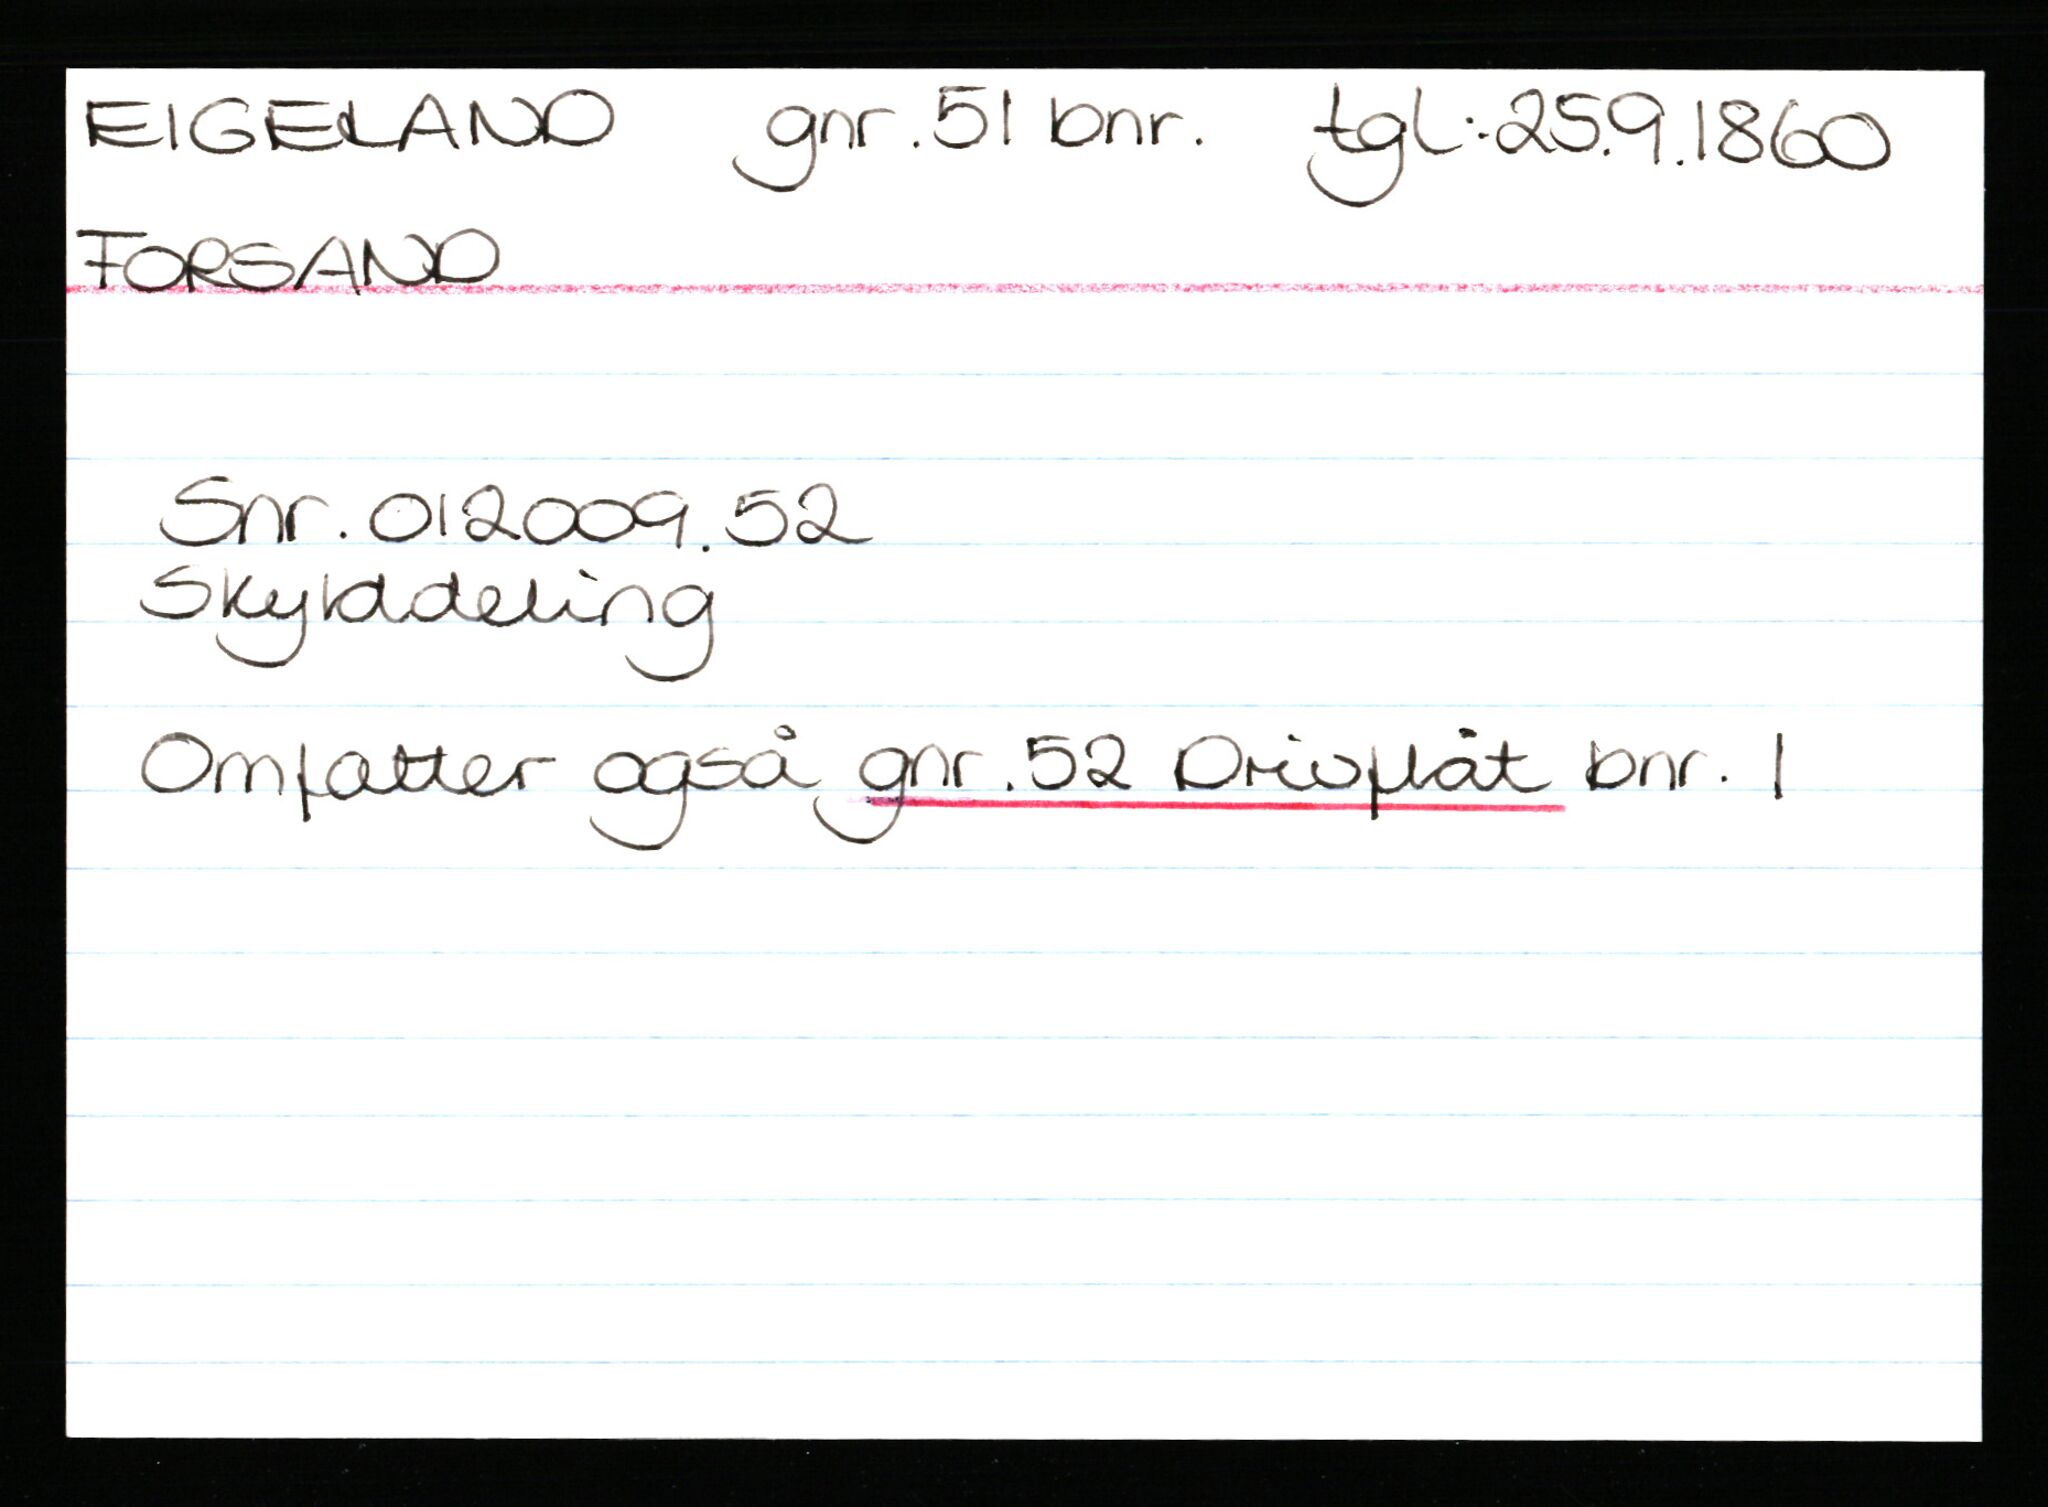 EIGELAND gnr. 51 bnr. tgl: 25.9.1860
FORSAND
Snr. 012009.52
Skylddeling
Omfatter også gnr. 52 Drivflåt bnr. 1